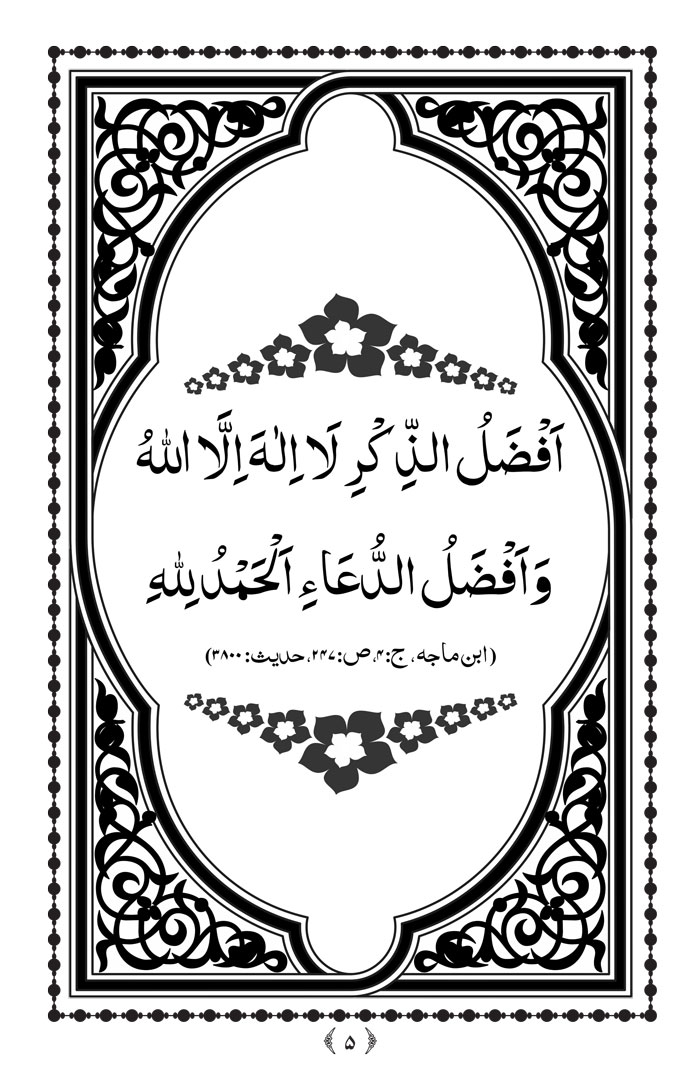 اَفْضَلُ الذِّكْرِ لَا اِلٰهَ اِلَّا اللهُ
وَاَفْضَلُ الدُّعَاءِ اَلْحَمْدُ لِلّٰهِ
(ابن ماجه، ج:۴، ص:۲۴۷، حدیث: ۳۸۰۰)
۵